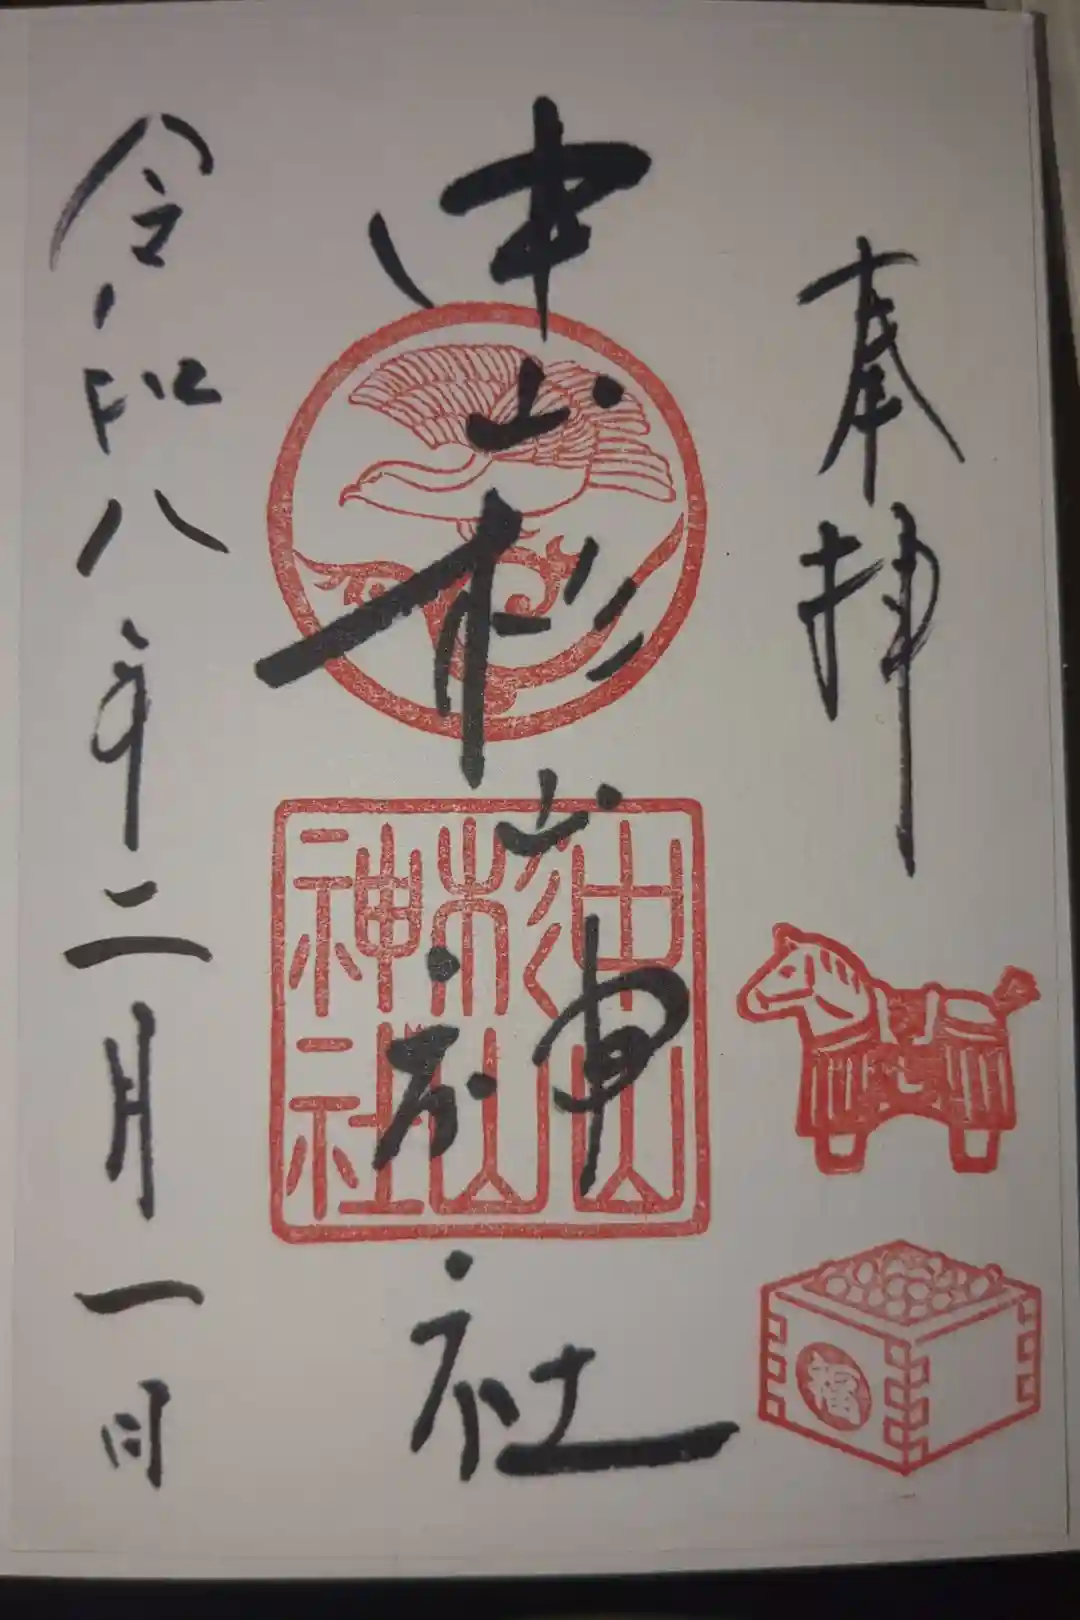 奉拝
中山杉山神社
中山
杉山
神社
福
令和八年二月一日